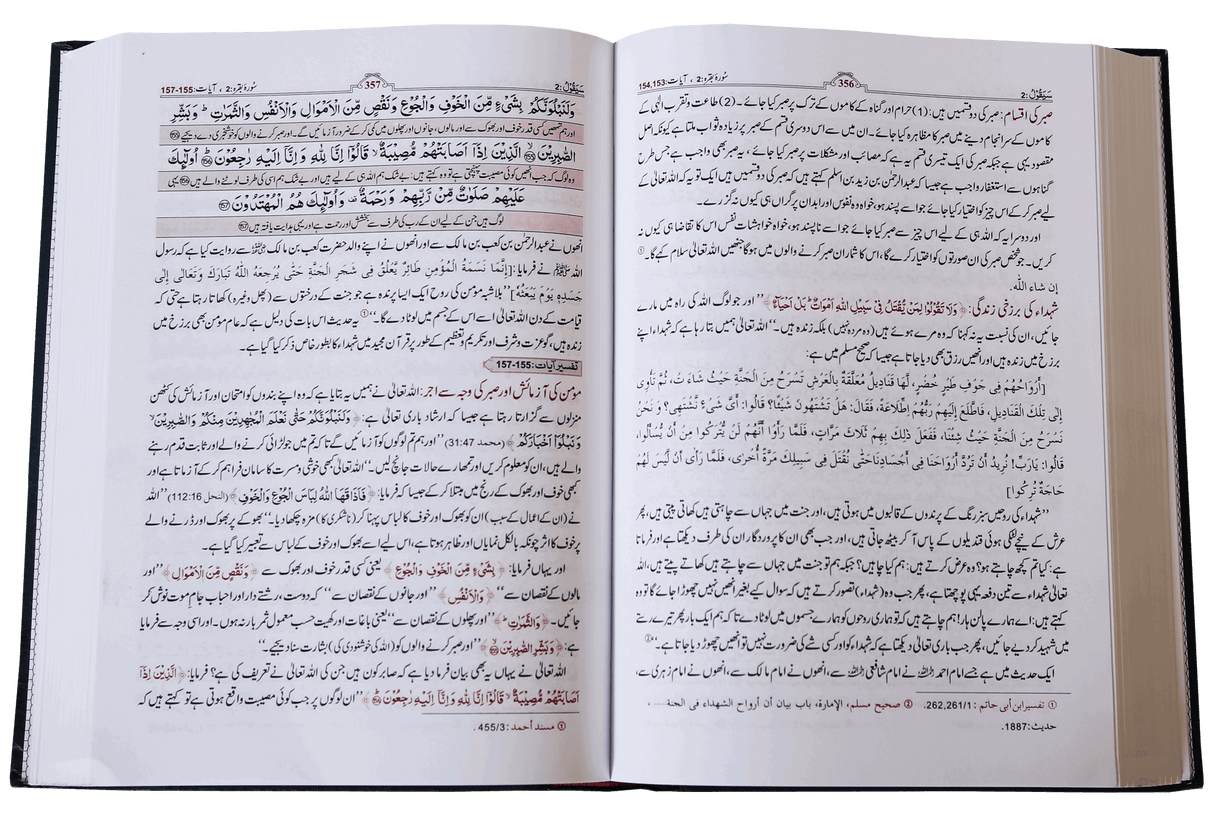 سَيَقُوْلُ: 2
356
سُورۂ بقرہ: 2 ، آیات: 154,153
صبر کی اقسام: صبر کی دو قسمیں ہیں: (1) حرام اور گناہ کے کاموں کے ترک پر صبر کیا جائے۔ (2) طاعت و تقرب الٰہی کے
کاموں کے سرانجام دینے میں صبر کا مظاہرہ کیا جائے۔ ان میں سے اس دوسری قسم کے صبر پر زیادہ ثواب ملتا ہے کیونکہ اصل
مقصود یہی ہے جبکہ صبر کی ایک تیسری قسم یہ ہے کہ مصائب اور مشکلات پر صبر کیا جائے ، یہ صبر بھی واجب ہے جس طرح
گناہوں سے استغفار واجب ہے جیسا کہ عبدالرحمٰن بن زید بن اسلم کہتے ہیں کہ صبر کی دو قسمیں ہیں ایک تو یہ کہ اللہ تعالیٰ کے
لیے صبر کر کے اس چیز کو اختیار کیا جائے جو اسے پسند ہو، خواہ وہ نفوس اور ابدان پر گراں ہی کیوں نہ گزرے۔
اور دوسرا یہ کہ اللہ ہی کے لیے اس چیز سے صبر کیا جائے جو اسے ناپسند ہو، خواہ خواہشات نفس اس کا تقاضا ہی کیوں نہ
کریں۔ جو شخص صبر کی ان صورتوں کو اختیار کرے گا، اس کا شمار ان صبر کرنے والوں میں ہو گا جنھیں اللہ تعالیٰ سلام کہے گا۔ ①
إن شاء اللّٰه.
شہداء کی برزخی زندگی: ﴿ وَلَا تَقُوْلُوْا لِمَنْ يُّقْتَلُ فِيْ سَبِيْلِ اللّٰهِ اَمْوَاتٌ ؕ بَلْ اَحْيَآءٌ ﴾ ’’اور جو لوگ اللہ کی راہ میں مارے
جائیں، ان کی نسبت یہ نہ کہنا کہ وہ مرے ہوئے ہیں (وہ مردہ نہیں) بلکہ زندہ ہیں۔‘‘ اللہ تعالیٰ ہمیں بتا رہا ہے کہ شہداء اپنے
برزخ میں زندہ ہیں اور انھیں رزق بھی دیا جاتا ہے جیسا کہ صحیح مسلم میں ہے:
[أَرْوَاحُهُمْ فِي جَوْفِ طَيْرٍ خُضْرٍ، لَهَا قَنَادِيلُ مُعَلَّقَةٌ بِالْعَرْشِ تَسْرَحُ مِنَ الْجَنَّةِ حَيْثُ شَاءَتْ، ثُمَّ تَأْوِي
إِلَى تِلْكَ الْقَنَادِيلِ، فَاطَّلَعَ إِلَيْهِمْ رَبُّهُمُ إِطِّلَاعَةً، فَقَالَ: هَلْ تَشْتَهُونَ شَيْئًا؟ قَالُوا: أَيَّ شَيْءٍ نَشْتَهِي؟ وَنَحْنُ
نَسْرَحُ مِنَ الْجَنَّةِ حَيْثُ شِئْنَا، فَفَعَلَ ذٰلِكَ بِهِمْ ثَلَاثَ مَرَّاتٍ، فَلَمَّا رَأَوْا أَنَّهُمْ لَنْ يُتْرَكُوا مِنْ أَنْ يُسْأَلُوا،
قَالُوا: يَارَبِّ! نُرِيدُ أَنْ تَرُدَّ أَرْوَاحَنَا فِي أَجْسَادِنَا حَتّٰى نُقْتَلَ فِي سَبِيلِكَ مَرَّةً أُخْرَى، فَلَمَّا رَأَى أَنْ لَيْسَ لَهُمْ
حَاجَةٌ تُرِكُوا]
’’شہداء کی روحیں سبز رنگ کے پرندوں کے قالبوں میں ہوتی ہیں، اور جنت میں جہاں سے چاہتی ہیں کھاتی پیتی ہیں، پھر
عرش کے نیچے لٹکی ہوئی قندیلوں کے پاس آ کر بیٹھ جاتی ہیں، اور جب بھی ان کا پروردگار ان کی طرف دیکھتا ہے اور فرماتا
ہے: کیا تم کچھ چاہتے ہو؟ وہ عرض کرتے ہیں: ہم کیا چاہیں؟ جبکہ ہم تو جنت میں جہاں سے چاہتے ہیں کھاتے پیتے ہیں، اللہ
تعالیٰ شہداء سے تین دفعہ یہی پوچھتا ہے، پھر جب وہ (شہداء) تصور کرتے ہیں کہ سوال کیے بغیر انھیں نہیں چھوڑا جائے گا تو وہ
کہتے ہیں: اے ہمارے پالن ہار! ہم چاہتے ہیں کہ تو ہماری روحوں کو ہمارے جسموں میں لوٹا دے تاکہ ہم ایک بار پھر تیرے رستے
میں شہید کر دیے جائیں، پھر جب باری تعالیٰ دیکھتا ہے کہ شہداء کو اور کسی شے کی ضرورت نہیں تو انھیں چھوڑ دیا جاتا ہے۔‘‘ ②
ایک حدیث میں ہے جسے امام احمد رحمہ اللہ نے امام شافعی رحمہ اللہ سے، انھوں نے امام مالک سے، انھوں نے امام زہری سے،
① تفسير ابن أبي حاتم : 262,261/1. ② صحيح مسلم، الإمارة، باب بيان أن أرواح الشهداء في الجنة.... ،
حديث: 1887.
سَيَقُوْلُ: 2
357
سُورۂ بقرہ: 2 ، آیات: 155-157
وَلَنَبْلُوَنَّكُمْ بِشَيْءٍ مِّنَ الْخَوْفِ وَالْجُوْعِ وَنَقْصٍ مِّنَ الْاَمْوَالِ وَالْاَنْفُسِ وَالثَّمَرٰتِ ؕ وَبَشِّرِ
اور ہم تمھیں کسی قدر خوف اور بھوک سے اور مالوں، جانوں اور پھلوں میں کمی کر کے ضرور آزمائیں گے۔ اور صبر کرنے والوں کو خوشخبری دے دیجیے ⑮⑤
الصّٰبِرِيْنَ ۝155 الَّذِيْنَ اِذَآ اَصَابَتْهُمْ مُّصِيْبَةٌ ۙ قَالُوْٓا اِنَّا لِلّٰهِ وَاِنَّآ اِلَيْهِ رٰجِعُوْنَ ۝156 اُولٰٓئِكَ
وہ لوگ کہ جب انھیں کوئی مصیبت پہنچتی ہے تو وہ کہتے ہیں: بے شک ہم اللہ ہی کے لیے ہیں اور بے شک ہم اسی کی طرف لوٹنے والے ہیں ۝156 یہی
عَلَيْهِمْ صَلَوٰتٌ مِّنْ رَّبِّهِمْ وَرَحْمَةٌ ۟ وَاُولٰٓئِكَ هُمُ الْمُهْتَدُوْنَ ۝157
لوگ ہیں جن کے لیے ان کے رب کی طرف سے بخشش اور رحمت ہے اور یہی ہدایت یافتہ ہیں ۝157
انھوں نے عبدالرحمٰن بن کعب بن مالک سے اور انھوں نے اپنے والد حضرت کعب بن مالک رضی اللہ عنہ سے روایت کیا ہے کہ رسول
اللہ ﷺ نے فرمایا: [إِنَّمَا نَسَمَةُ الْمُؤْمِنِ طَائِرٌ يَعْلُقُ فِي شَجَرِ الْجَنَّةِ حَتّٰى يُرْجِعَهُ اللّٰهُ تَبَارَكَ وَتَعَالَى إِلَى
جَسَدِهِ يَوْمَ يَبْعَثُهُ] ’’بلاشبہ مؤمن کی روح ایک ایسا پرندہ ہے جو جنت کے درختوں سے (پھل وغیرہ) کھاتا رہتا ہے حتی کہ
قیامت کے دن اللہ تعالیٰ اسے اس کے جسم میں لوٹا دے گا۔‘‘ ① یہ حدیث اس بات کی دلیل ہے کہ عام مؤمن بھی برزخ میں
زندہ ہیں، گو عزت و شرف اور تکریم و تعظیم کے طور پر قرآن مجید میں شہداء کا بطور خاص ذکر کیا گیا ہے۔
تفسیر آیات: 155-157
مؤمن کی آزمائش اور صبر کی وجہ سے اجر: اللہ تعالیٰ نے ہمیں یہ بتایا ہے کہ وہ اپنے بندوں کو امتحان اور آزمائش کی کٹھن
منزلوں سے گزارتا رہتا ہے جیسا کہ ارشاد باری تعالیٰ ہے: ﴿ وَلَنَبْلُوَنَّكُمْ حَتّٰى نَعْلَمَ الْمُجٰهِدِيْنَ مِنْكُمْ وَالصّٰبِرِيْنَ ۙ
وَنَبْلُوَا۟ اَخْبَارَكُمْ ﴾ (محمد 31:47) ’’اور ہم تم لوگوں کو آزمائیں گے تاکہ تم میں جو لڑائی کرنے والے اور ثابت قدم رہنے
والے ہیں، ان کو معلوم کریں اور تمھارے حالات جانچ لیں۔‘‘ اللہ تعالیٰ کبھی خوشی و مسرت کا سامان فراہم کر کے آزماتا ہے اور
کبھی خوف اور بھوک کے رنج میں مبتلا کر کے جیسا کہ فرمایا: ﴿ فَاَذَاقَهَا اللّٰهُ لِبَاسَ الْجُوْعِ وَالْخَوْفِ ﴾ (النحل 112:16) ’’اللہ
نے (ان کے اعمال کے سبب) ان کو بھوک اور خوف کا لباس پہنا کر (ناشکری کا) مزہ چکھا دیا۔‘‘ بھوکے پر بھوک اور ڈرنے والے
پر خوف کا اثر چونکہ بالکل نمایاں اور ظاہر ہوتا ہے، اس لیے اسے بھوک اور خوف کے لباس سے تعبیر کیا گیا ہے۔
اور یہاں فرمایا: ﴿ بِشَيْءٍ مِّنَ الْخَوْفِ وَالْجُوْعِ ﴾ یعنی کسی قدر خوف اور بھوک سے ﴿ وَنَقْصٍ مِّنَ الْاَمْوَالِ ﴾ ’’اور
مالوں کے نقصان سے‘‘ ﴿ وَالْاَنْفُسِ ﴾ ’’اور جانوں کے نقصان سے‘‘ کہ دوست، رشتے دار اور احباب جام موت نوش کر
جائیں۔ ﴿ وَالثَّمَرٰتِ ؕ ﴾ ’’اور پھلوں کے نقصان سے‘‘ یعنی باغات اور کھیت حسب معمول ثمر بار نہ ہوں۔ اور اسی وجہ سے فرمایا
ہے: ﴿ وَبَشِّرِ الصّٰبِرِيْنَ ۝155 ﴾ ’’اور صبر کرنے والوں کو (اللہ کی خوشنودی کی) بشارت سنا دیجیے۔‘‘
اللہ تعالیٰ نے یہاں یہ بھی بیان فرما دیا ہے کہ صابر کون ہیں جن کی اللہ تعالیٰ نے تعریف کی ہے؟ فرمایا: ﴿ الَّذِيْنَ اِذَآ
اَصَابَتْهُمْ مُّصِيْبَةٌ ۙ قَالُوْٓا اِنَّا لِلّٰهِ وَاِنَّآ اِلَيْهِ رٰجِعُوْنَ ۝156 ﴾ ’’ان لوگوں پر جب کوئی مصیبت واقع ہوتی ہے تو کہتے ہیں کہ
① مسند أحمد : 455/3 .